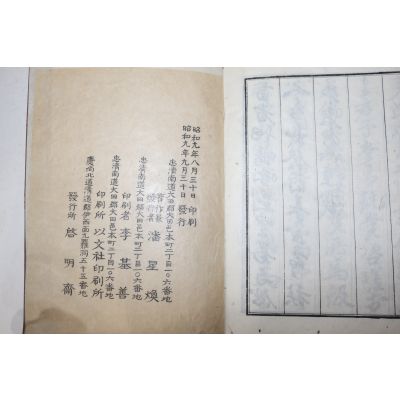 昭和九年八月三十日 印刷
昭和九年九月三十日 發行
忠淸南道大田郡大田邑本町二丁目一〇六番地
著作兼
發行者 潘星煥
忠淸南道大田郡大田邑本町二丁目一〇六番地
印刷者 李基善
忠淸南道大田郡大田邑本町二丁目一〇六番地
印刷所 以文社印刷所
慶尙北道淸道郡伊西面九羅洞五十五番地
發行所 啓明齋